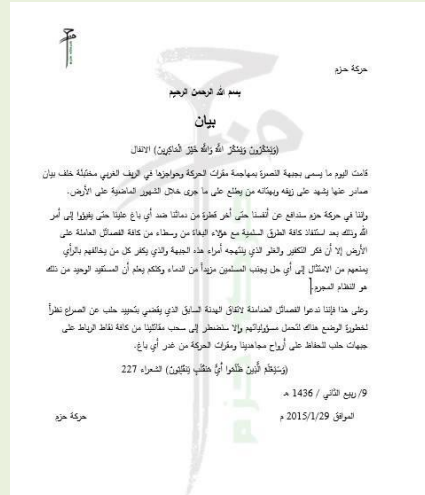 حركة حزم
بسم الله الرحمن الرحيم
بيان
(وَيَمْكُرُونَ وَيَمْكُرُ اللَّهُ وَاللَّهُ خَيْرُ الْمَاكِرِينَ) الانفال
قامت اليوم ما يسمى بجبهة النصرة بمهاجمة مقرات الحركة وحواجزها في الريف الغربي مختبئة خلف بيان
صادر عنها يشهد على زيفه وبهتانه من يطلع على ما جرى خلال الشهور الماضية على الأرض.
وإننا في حركة حزم سندافع عن أنفسنا حتى أخر قطرة من دمائنا ضد أي باغ علينا حتى يفيؤوا إلى أمر
الله وذلك بعد استنفاذ كافة الطرق السلمية مع هؤلاء البغاة من وسطاء من كافة الفصائل العاملة على
الأرض إلا أن فكر التكفير والغلو الذي ينتهجه أمراء هذه الجبهة والذي يكفر كل من يخالفهم بالرأي
يمنعهم من الامتثال إلى أي حل يجنب المسلمين مزيداً من الدماء وكلكم يعلم أن المستفيد الوحيد من ذلك
هو النظام المجرم.
وعلى هذا فإننا ندعوا الفصائل الضامنة لاتفاق الهدنة السابق الذي يقضي بتحييد حلب عن الصراع نظراً
لخطورة الوضع هناك لتحمل مسؤولياتهم وإلا سنضطر إلى سحب مقاتلينا من كافة نقاط الرباط على
جبهات حلب للحفاظ على أرواح مجاهدينا ومقرات الحركة من غدر أي باغ.
(وَسَيَعْلَمُ الَّذِينَ ظَلَمُوا أَيَّ مُنقَلَبٍ يَنقَلِبُونَ) الشعراء 227
9/ ربيع الثاني / 1436 هـ
الموافق 2015/1/29 م
حركة حزم